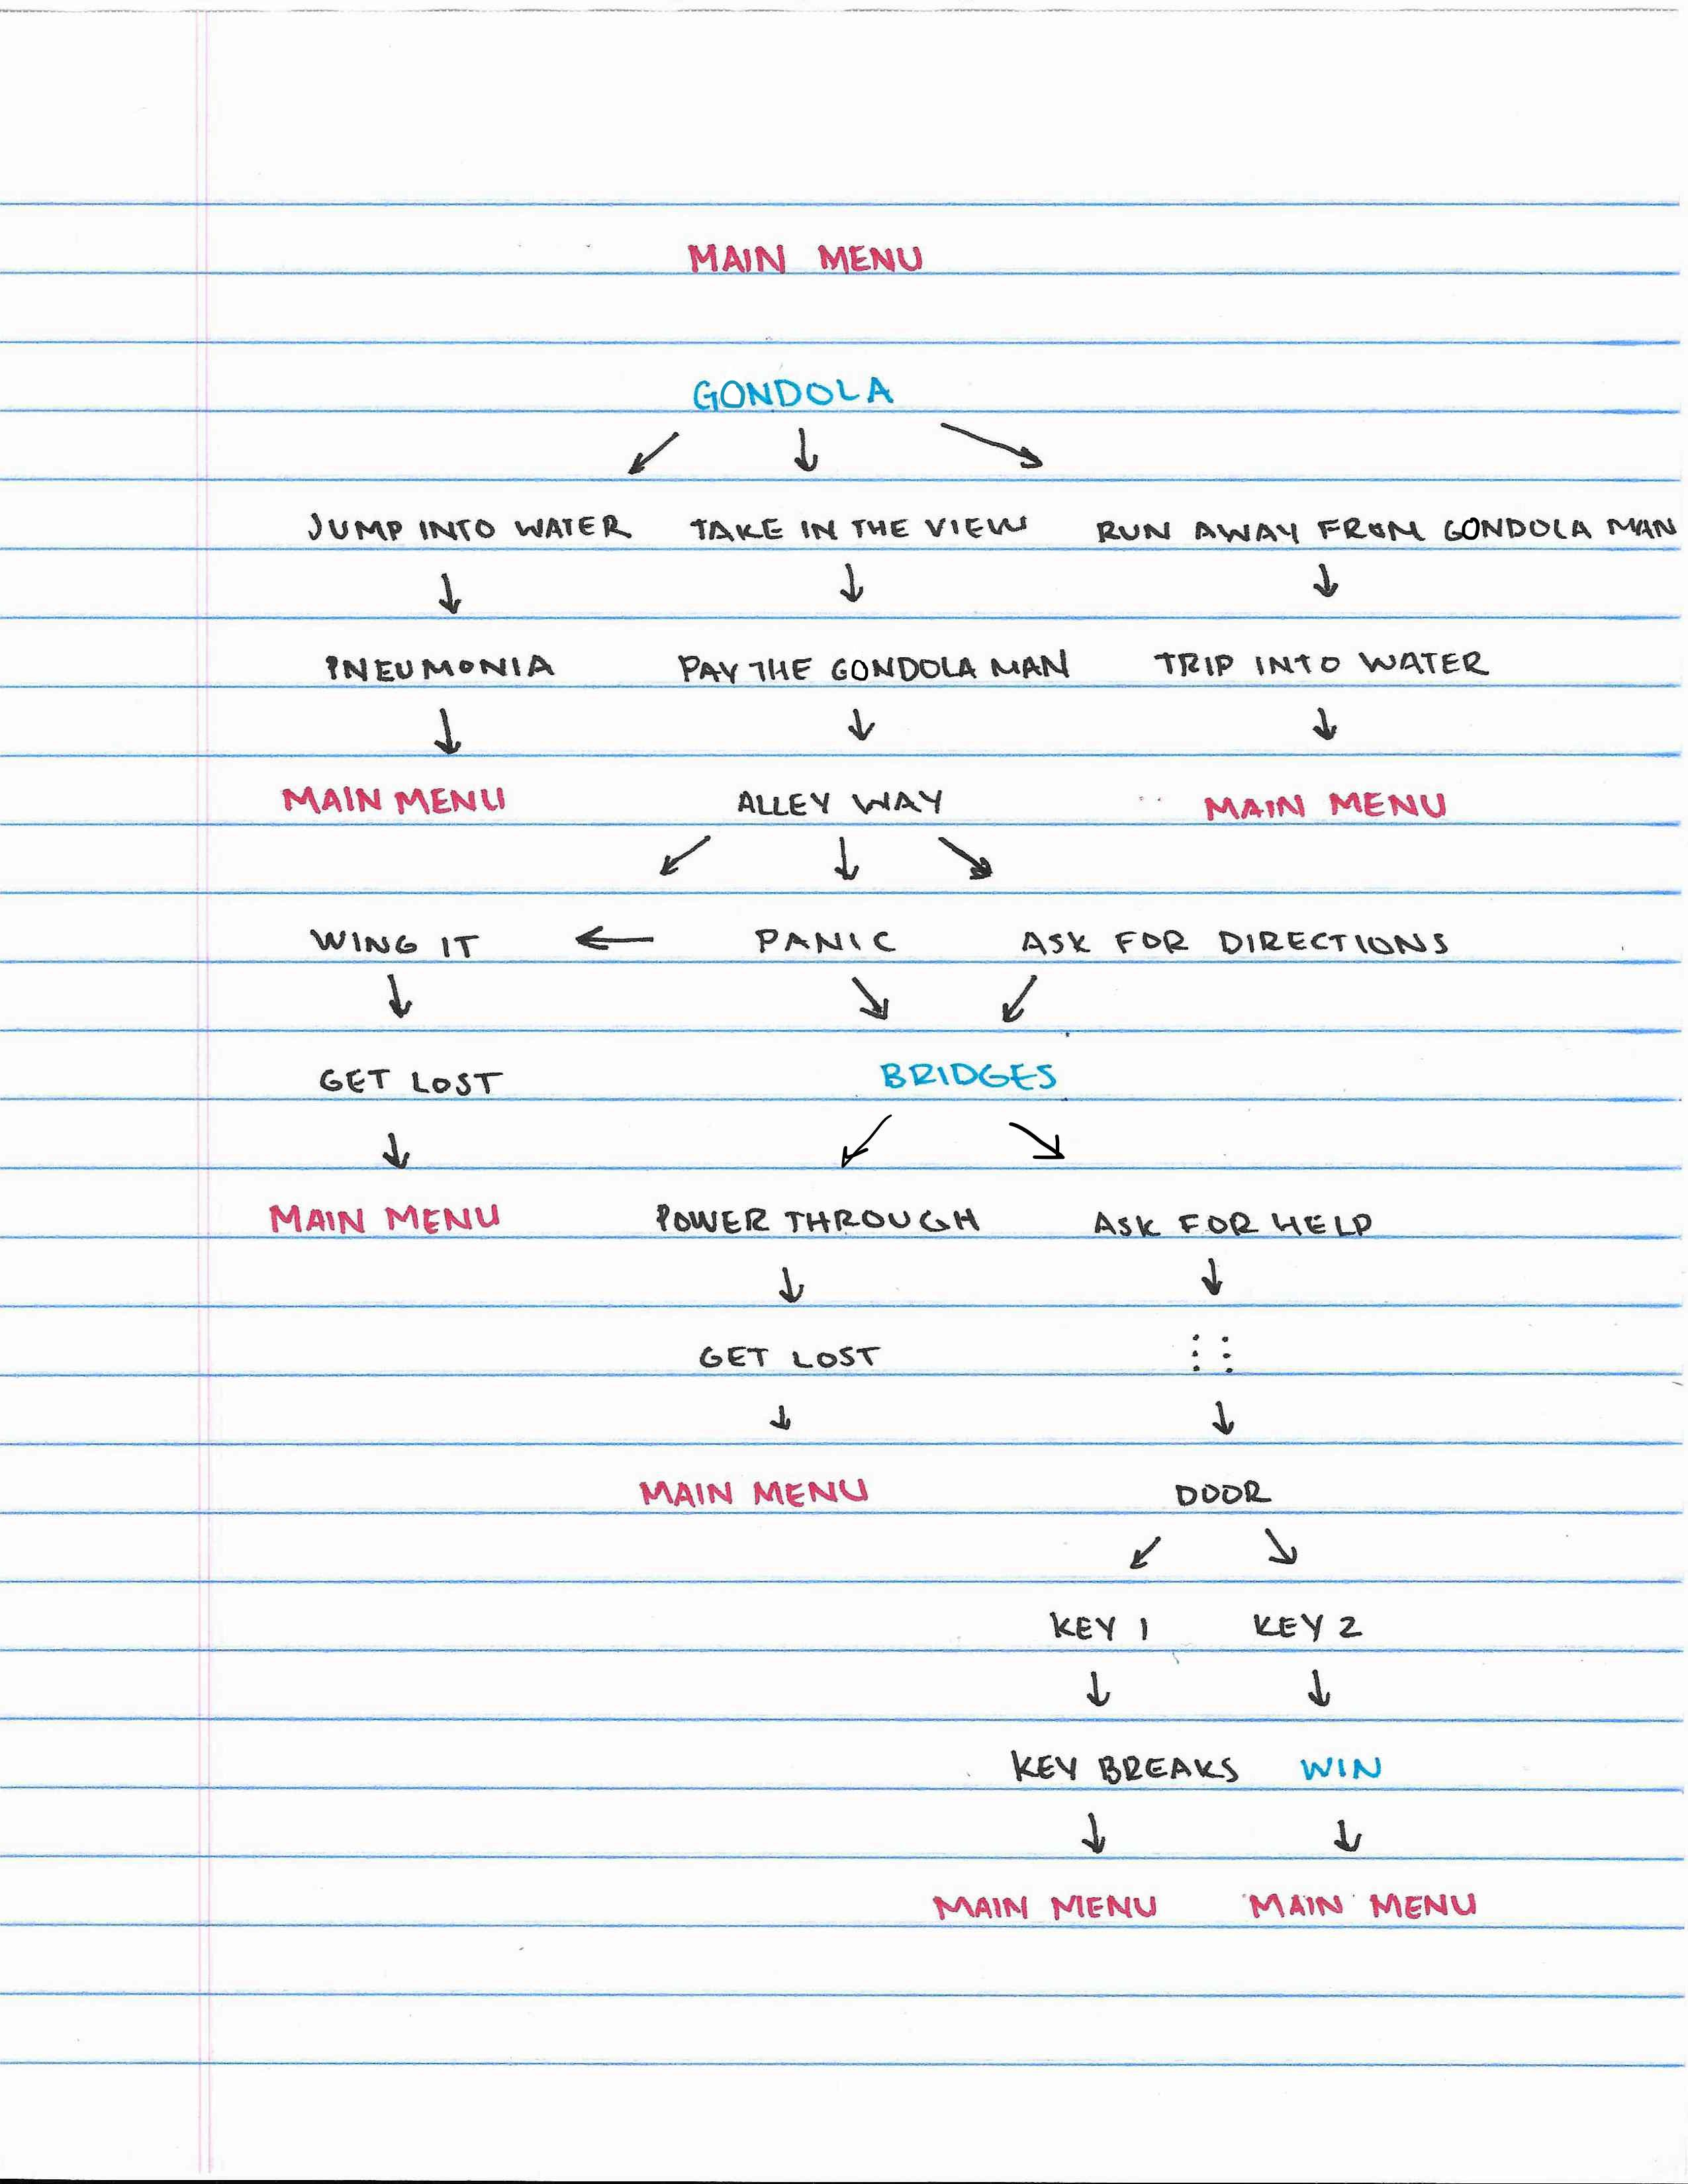 MAIN MENU
GONDOLA
JUMP INTO WATER TAKE IN THE VIEW RUN AWAY FROM GONDOLA MAN
PNEUMONIA PAY THE GONDOLA MAN TRIP INTO WATER
MAIN MENU ALLEY WAY MAIN MENU
WING IT PANIC ASK FOR DIRECTIONS
GET LOST BRIDGES
MAIN MENU POWER THROUGH ASK FOR HELP
GET LOST
MAIN MENU DOOR
KEY 1 KEY 2
KEY BREAKS WIN
MAIN MENU MAIN MENU